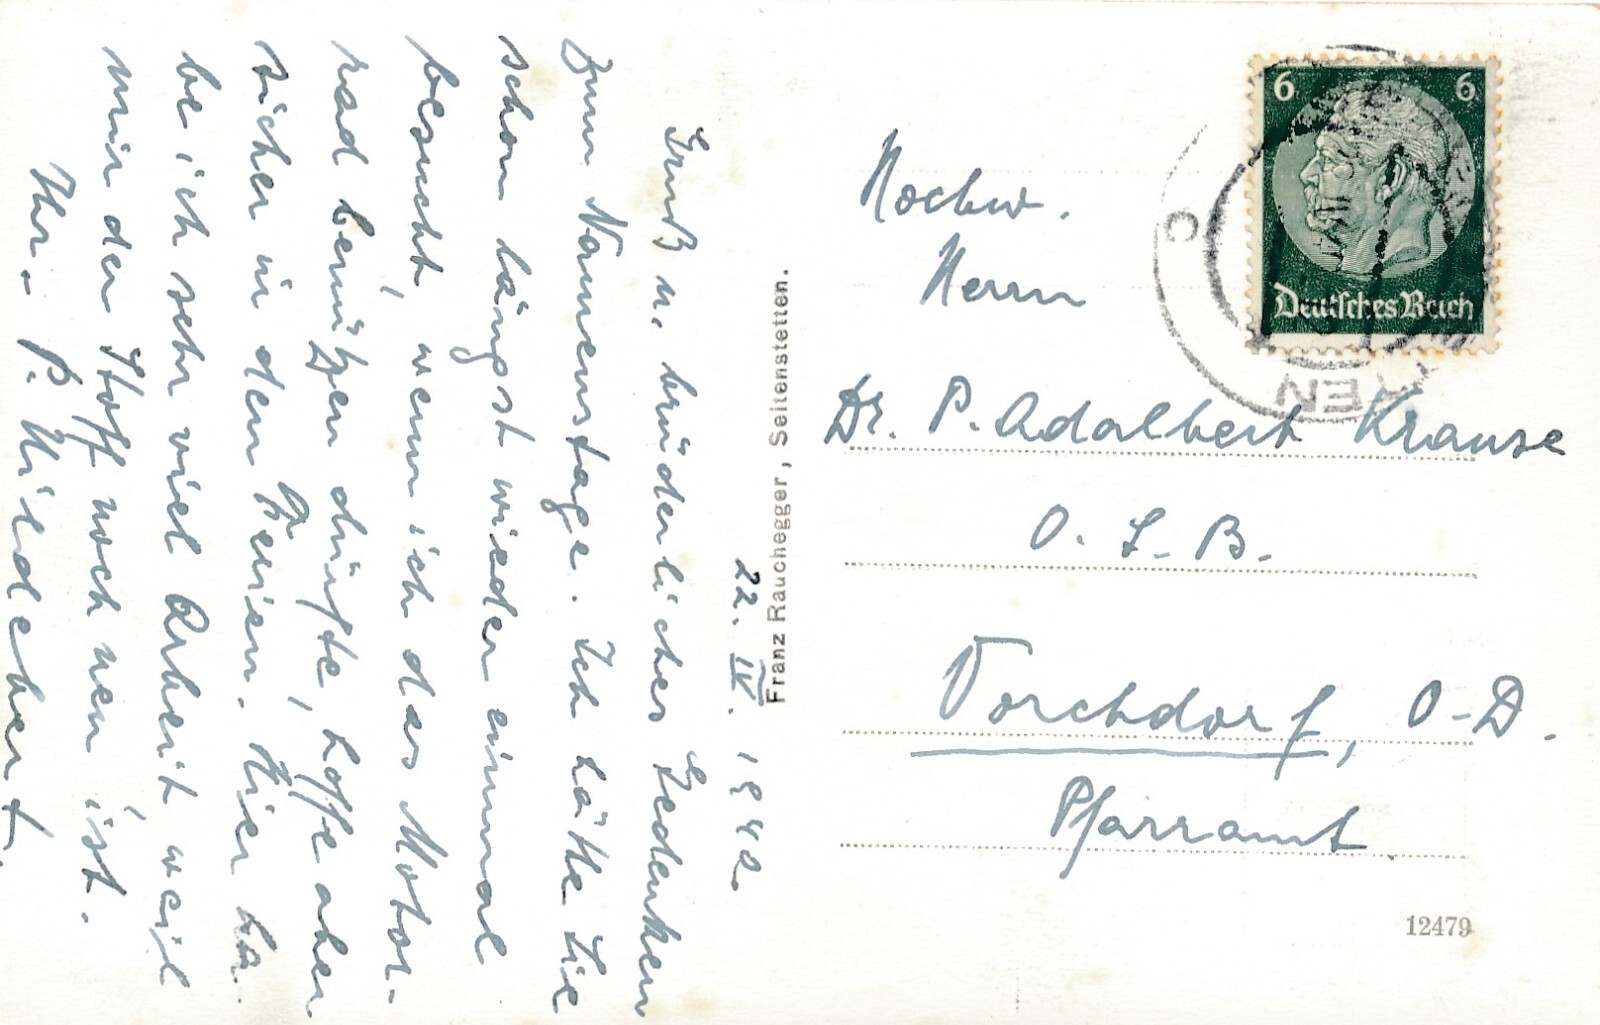 22. IV. 1940.
Gruß u. brüderliches Gedenken
zum Namenstage. Ich hätte Sie
schon längst wieder einmal
besucht, wenn ich das Motor-
rad benützen dürfte, hoffe aber
sicher in den Ferien. Hier ha-
be ich sehr viel Arbeit weil
mir der Stoff noch neu ist.
Ihr P. Hildebert.
Franz Rauchegger, Seitenstetten.
6 6
Deutsches Reich
EN
Hochw.
Herrn
Dr. P. Adalbert Krause
O. S. B.
Vorchdorf, O-D.
Pfarramt.
12479